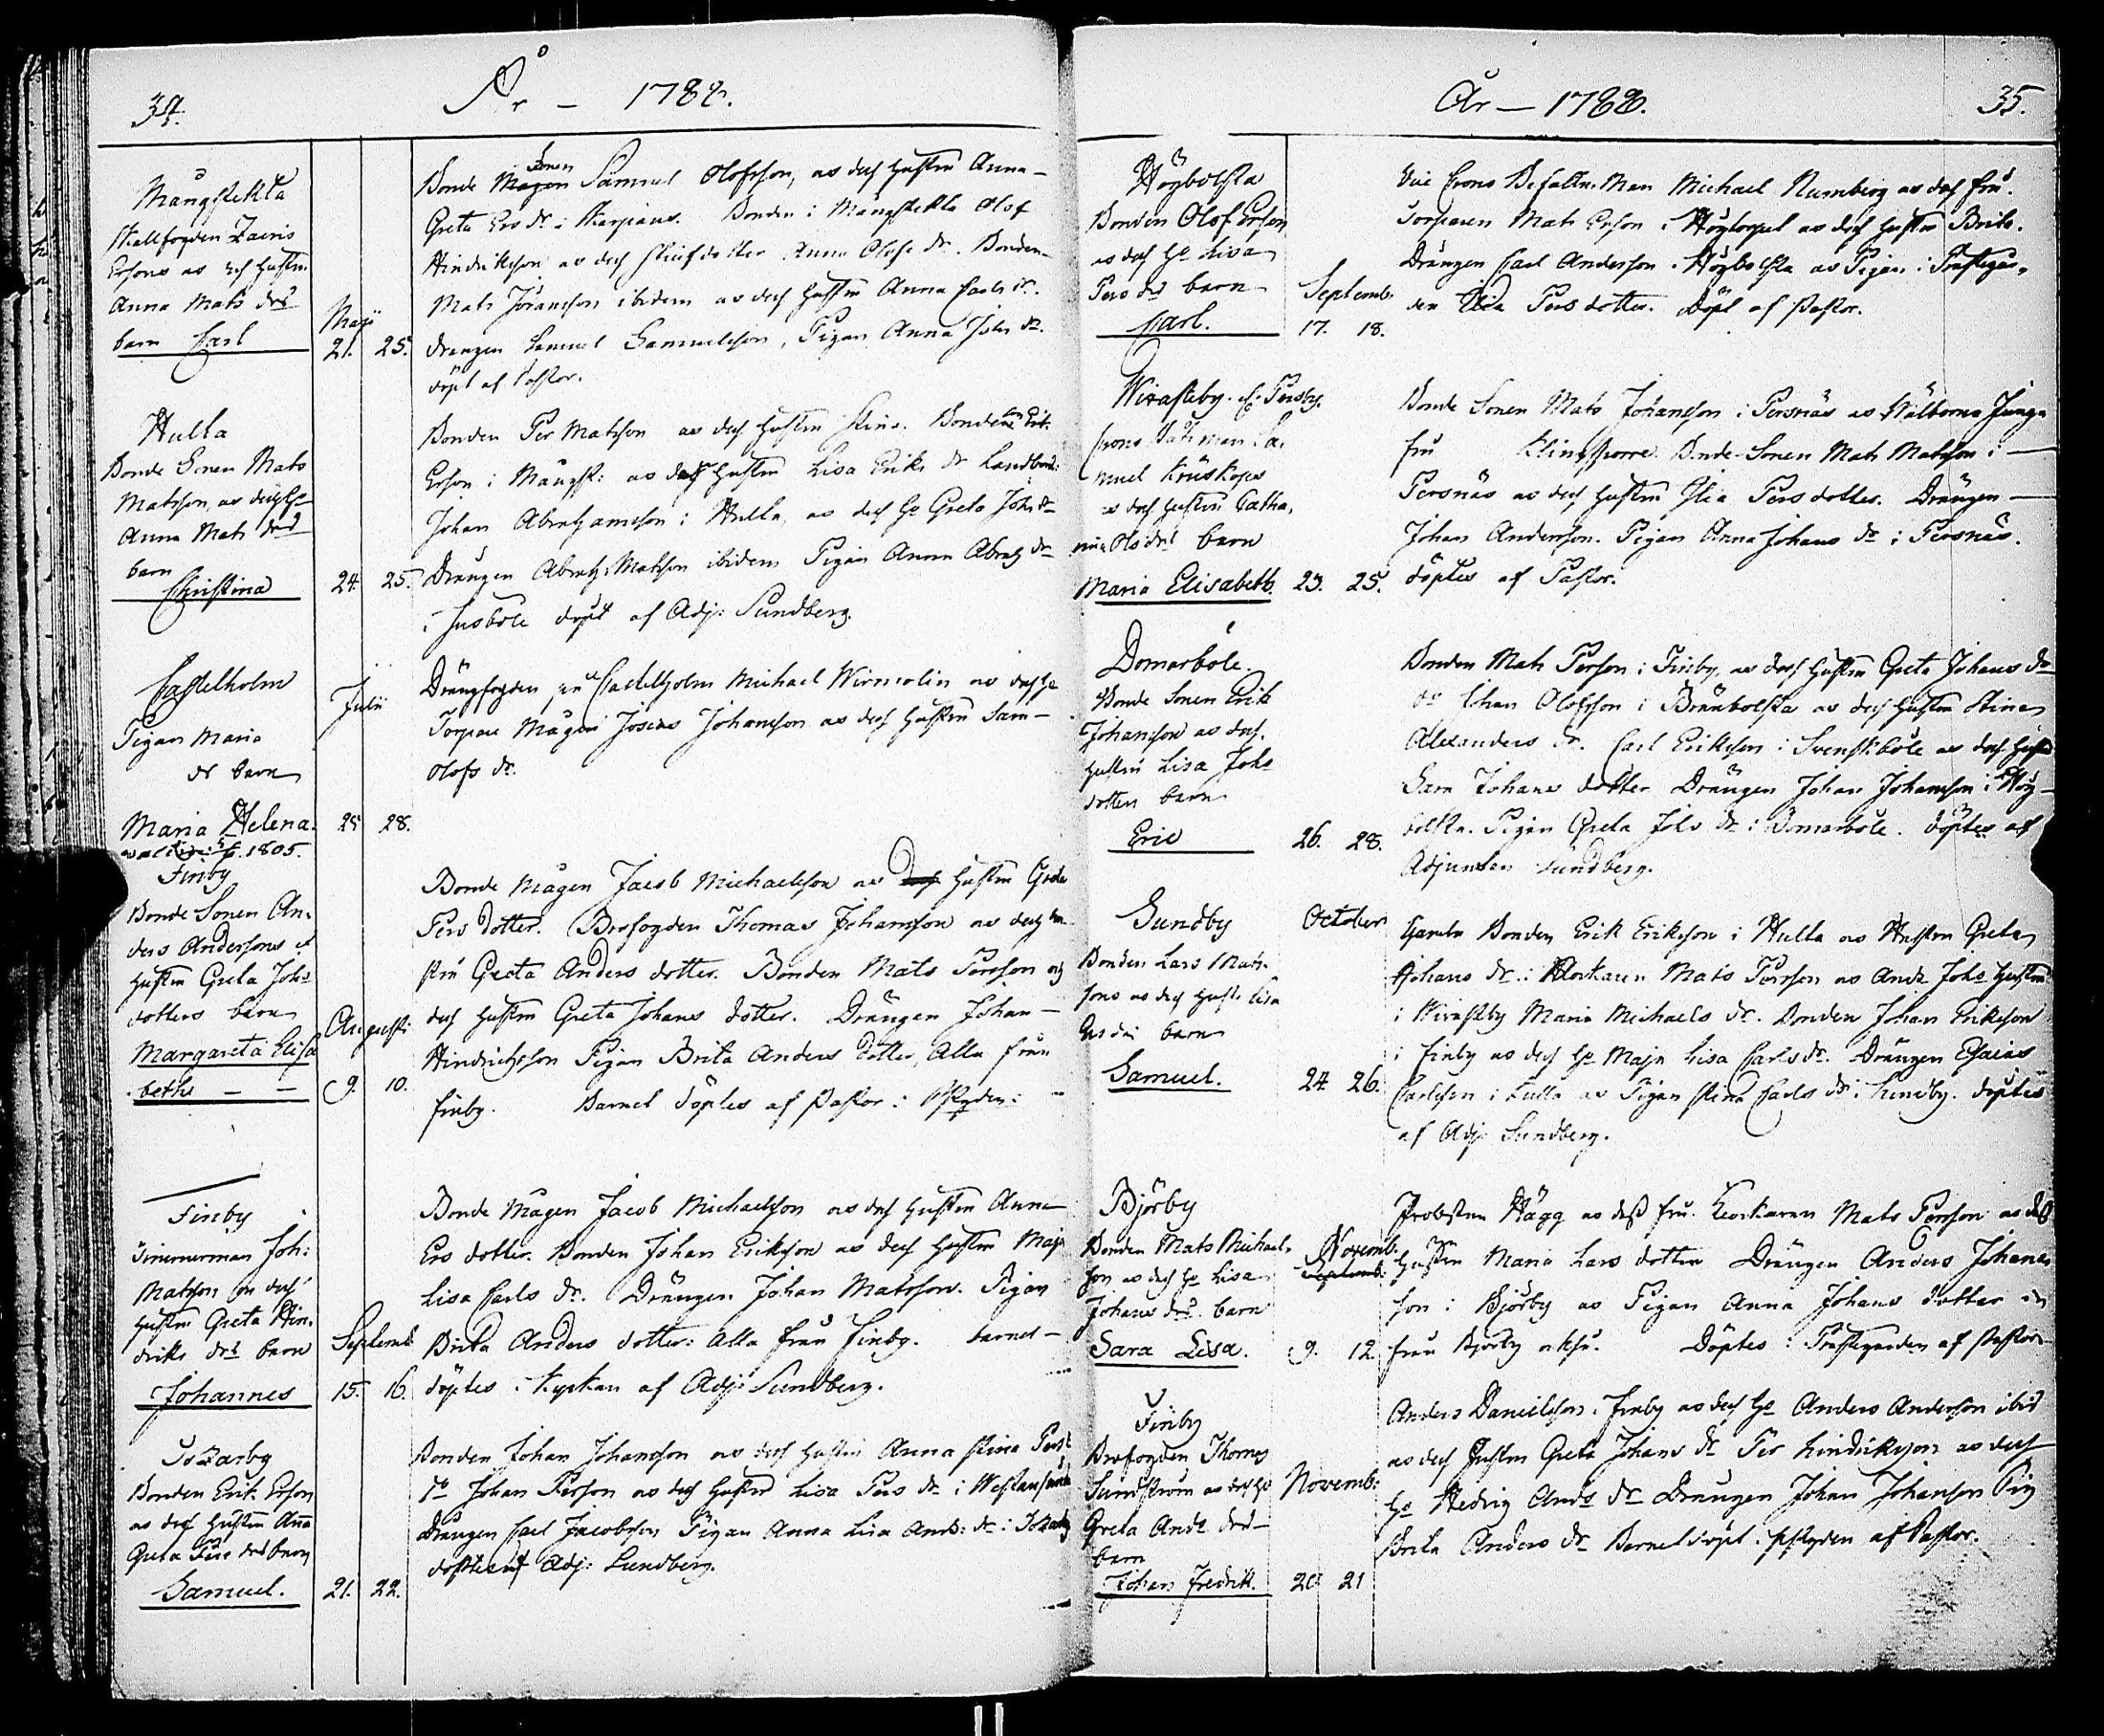 34.
År – 1788.
Mångstekta
Erssons as dess hustru
Anna Mats drs
barn Carl
Maji
21. 25.
Bonde Sonen Samuel Olofsson, as dess hustru Anna
Greta Ers dr i Bonden i Mångstekta Olof
Hindriksson as dess Anna Olofs dr. Bonden
Mats Jöransson ibidem as dess hustru Anna Carls dr.
drängen Samuel Samuelsson, Pigan Anna Johs dr.
döpt af Pastor.
Hulla
Bonde Sonen Mats
Matsson, as dess Ho
Anna Mats drs
barn
Christina
24. 25.
Bonden Per Matsson as dess hustru Stina. Bonden Erik
Erson i Mångst: as dess hustru Lisa Eriks dr
Johan Abrahamsson i Hulla, as dess Ho Greta Johs dr
Drängen Abrah: Matsson ibidem Pigan Anna Abrah dr
i Husböle döpt af Adj: Sundberg.
Castelholm
Pigan Maria
dr barn
Maria Helena.
1805.
Julii
25 28.
Drängfogden på Castelholm Michael as dess Ho
Torpare Mågen Josias Johansson as dess hustru Sara
Olofs dr.
Finby
Bonde Sonen An-
ders Anderssons &
hustru Greta Johs
dotters barn
Margareta Elisa
beth – –
Augusti
9. 10.
Bonde Mågen Jacob Michaelsson as hustru Greta
Pers dotter. Brofogden Thomas Johansson as dess hu-
stru Greta Anders dotter. Bonden Mats Persson och
dess hustru Greta Johans dotter. Drängen Johan
Hindrichsson Pigan Brita Anders dotter, Alla från
finby. Barnet döptes af Pastor i
Finby
Timmerman Joh:
Matsson as dess
hustru Greta Hin-
driks drs barn
Johannes
Septemb
15. 16.
Bonde Mågen Jacob Michaelsson as dess hustru Anna
Ers dotter. Bonden Johan Eriksson as dess hustru Maja
Lisa Carls dr. Drängen Johan Matsson. Pigan
Brita Anders dotter: Alla från Finby. barnet
döptes i Kyrkan af Adj: Sundberg.
Bonden Erik Erson
as dess hustru Anna
Greta Pers drs barn
Samuel.
21. 22.
Bonden Johan Johansson as dess hustru Anna Stina Pers
do Johan Persson as dess hustru Lisa Pers dr i
Drängen Carl Jacobsson Pigan Anna Lisa And: dr i
döptes af Adj: Sundberg.
År – 1788.
35.
Högbolsta
Bonden Olof Erson
as dess Ho Lisa
Pers drs barn
Carl.
Septemb:
17. 18.
Vice Crono Befaltn: Man Michael Numberg as dess fru.
Torparen Mats Erson i Högtorpet as dess hustru Brita.
Drängen Carl Andersson i Högbolsta as Pigan i Prästegår-
den Pers dotter. Döpt af Pastor.
Persby.
muel
as dess hustru Catha-
rina Ols drs barn
Maria Elisabeth.
23. 25.
Bonde Sonen Mats Johansson i Persnäs as Jung-
fru Klingsporre. Bonde Sonen Mats Matsson i
Persnäs as dess hustru Pers dotter. Drängen
Johan Andersson. Pigan Anna Johans dr i Persnäs.
döptes af Pastor.
Domarböle.
Bonde Sonen Erik
Johansson as dess
hustru Lisa Johs
dotters barn
Eric
26. 28.
Bonden Mats Persson i Finby, as dess hustru Greta Johans dr
do Johan Olofsson i Bränbolsta as dess hustru Stina
Alexanders dr. Carl Eriksson i Svensböle as dess hustru
Sara Johans dotter Drängen Johan Johansson i Hög-
bolsta. Pigan Greta Johs dr i Domarböle. döptes af
Adjuncten Sundberg.
Sundby
Bonden Lars Mats-
sons as dess hustr. Lisa
barn
Samuel.
October
24 26.
Gamla Bonden Erik Eriksson i Hulla as Hustru Greta
Johans dr. Klockaren Mats Persson as Johs hustru
i Maria Michaels dr. Bonden Johan Eriksson
i finby as dess Ho Maja Lisa Carls dr. Drängen Esaias
Carlsson i as Pigan Stina Carls dr i Sundby. döptes
af Adj: Sundberg.
Björby
Bonden Mats Michaels-
son as dess Ho Lisa
Johans drs barn
Sara Lisa.
Novemb.
Septemb:
9. 12.
Probsten Hägg as dess fru. Klockaren Mats Persson as dess
hustru Maria Lars dotter Drängen Anders Johans
son i Björby as Pigan Anna Johans dotter
från Björby Döptes i Prästegården af Pastor
Finby
Brofogden Thomas
Sundström as dess Ho
Greta Ands drs
barn
Johan Fredrik.
Novemb:
20 21
Anders Danielsson i finby as dess Ho Anders Andersson ibid
as dess hustru Greta Johans dr Per Hindriksson as dess
Ho Hedvig Ands dr Drängen Johan Johansson Pig
Brita Anders dr Barnet döpt i af Pastor.